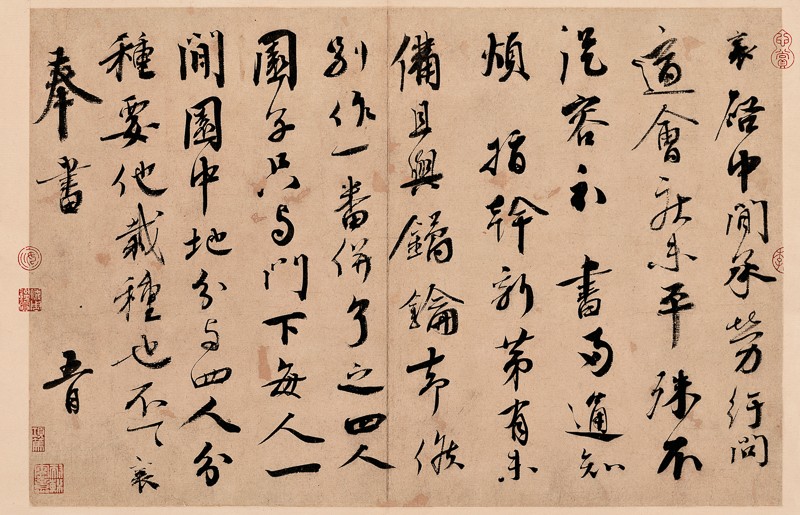 襄啓中間承勞行問
適會疾未平殊不
從容示書通知
煩指幹新第有未
備且與鐍鑰候
別作一番併了之四人
園子只与門下每人一
間園中地分与四人分
種要他栽種也不一一襄
奉書